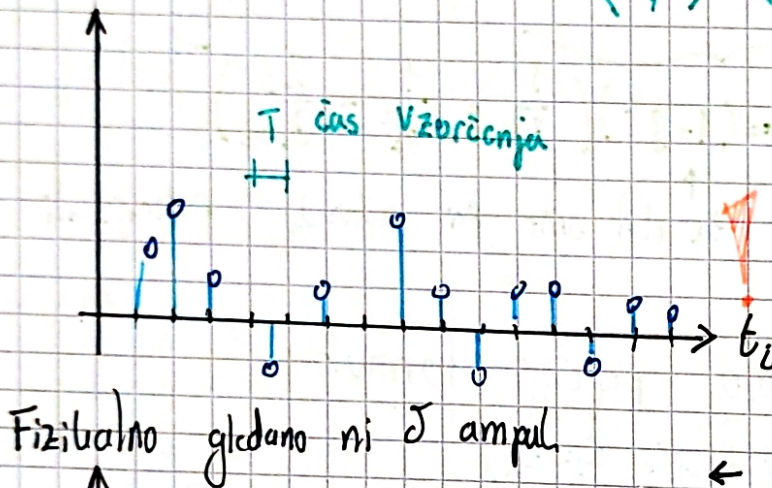 T čas vzorčenja
t_i
Fizikalno gledano ni δ ampul